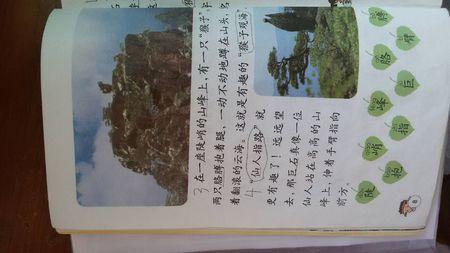 3在一座陡峭的山峰上，有一只“猴子”。它
两只胳膊抱着腿，一动不动地蹲在山头，
着翻滚的云海。这就是有趣的“猴子观海”。
4“仙人指路”就
更有趣了！远远望
去，那巨石真像一位
仙人站在高高的山
峰上，伸着手臂指向
前方。
陡 峭 峰 胳 膊
抱 指 巨 臂
8